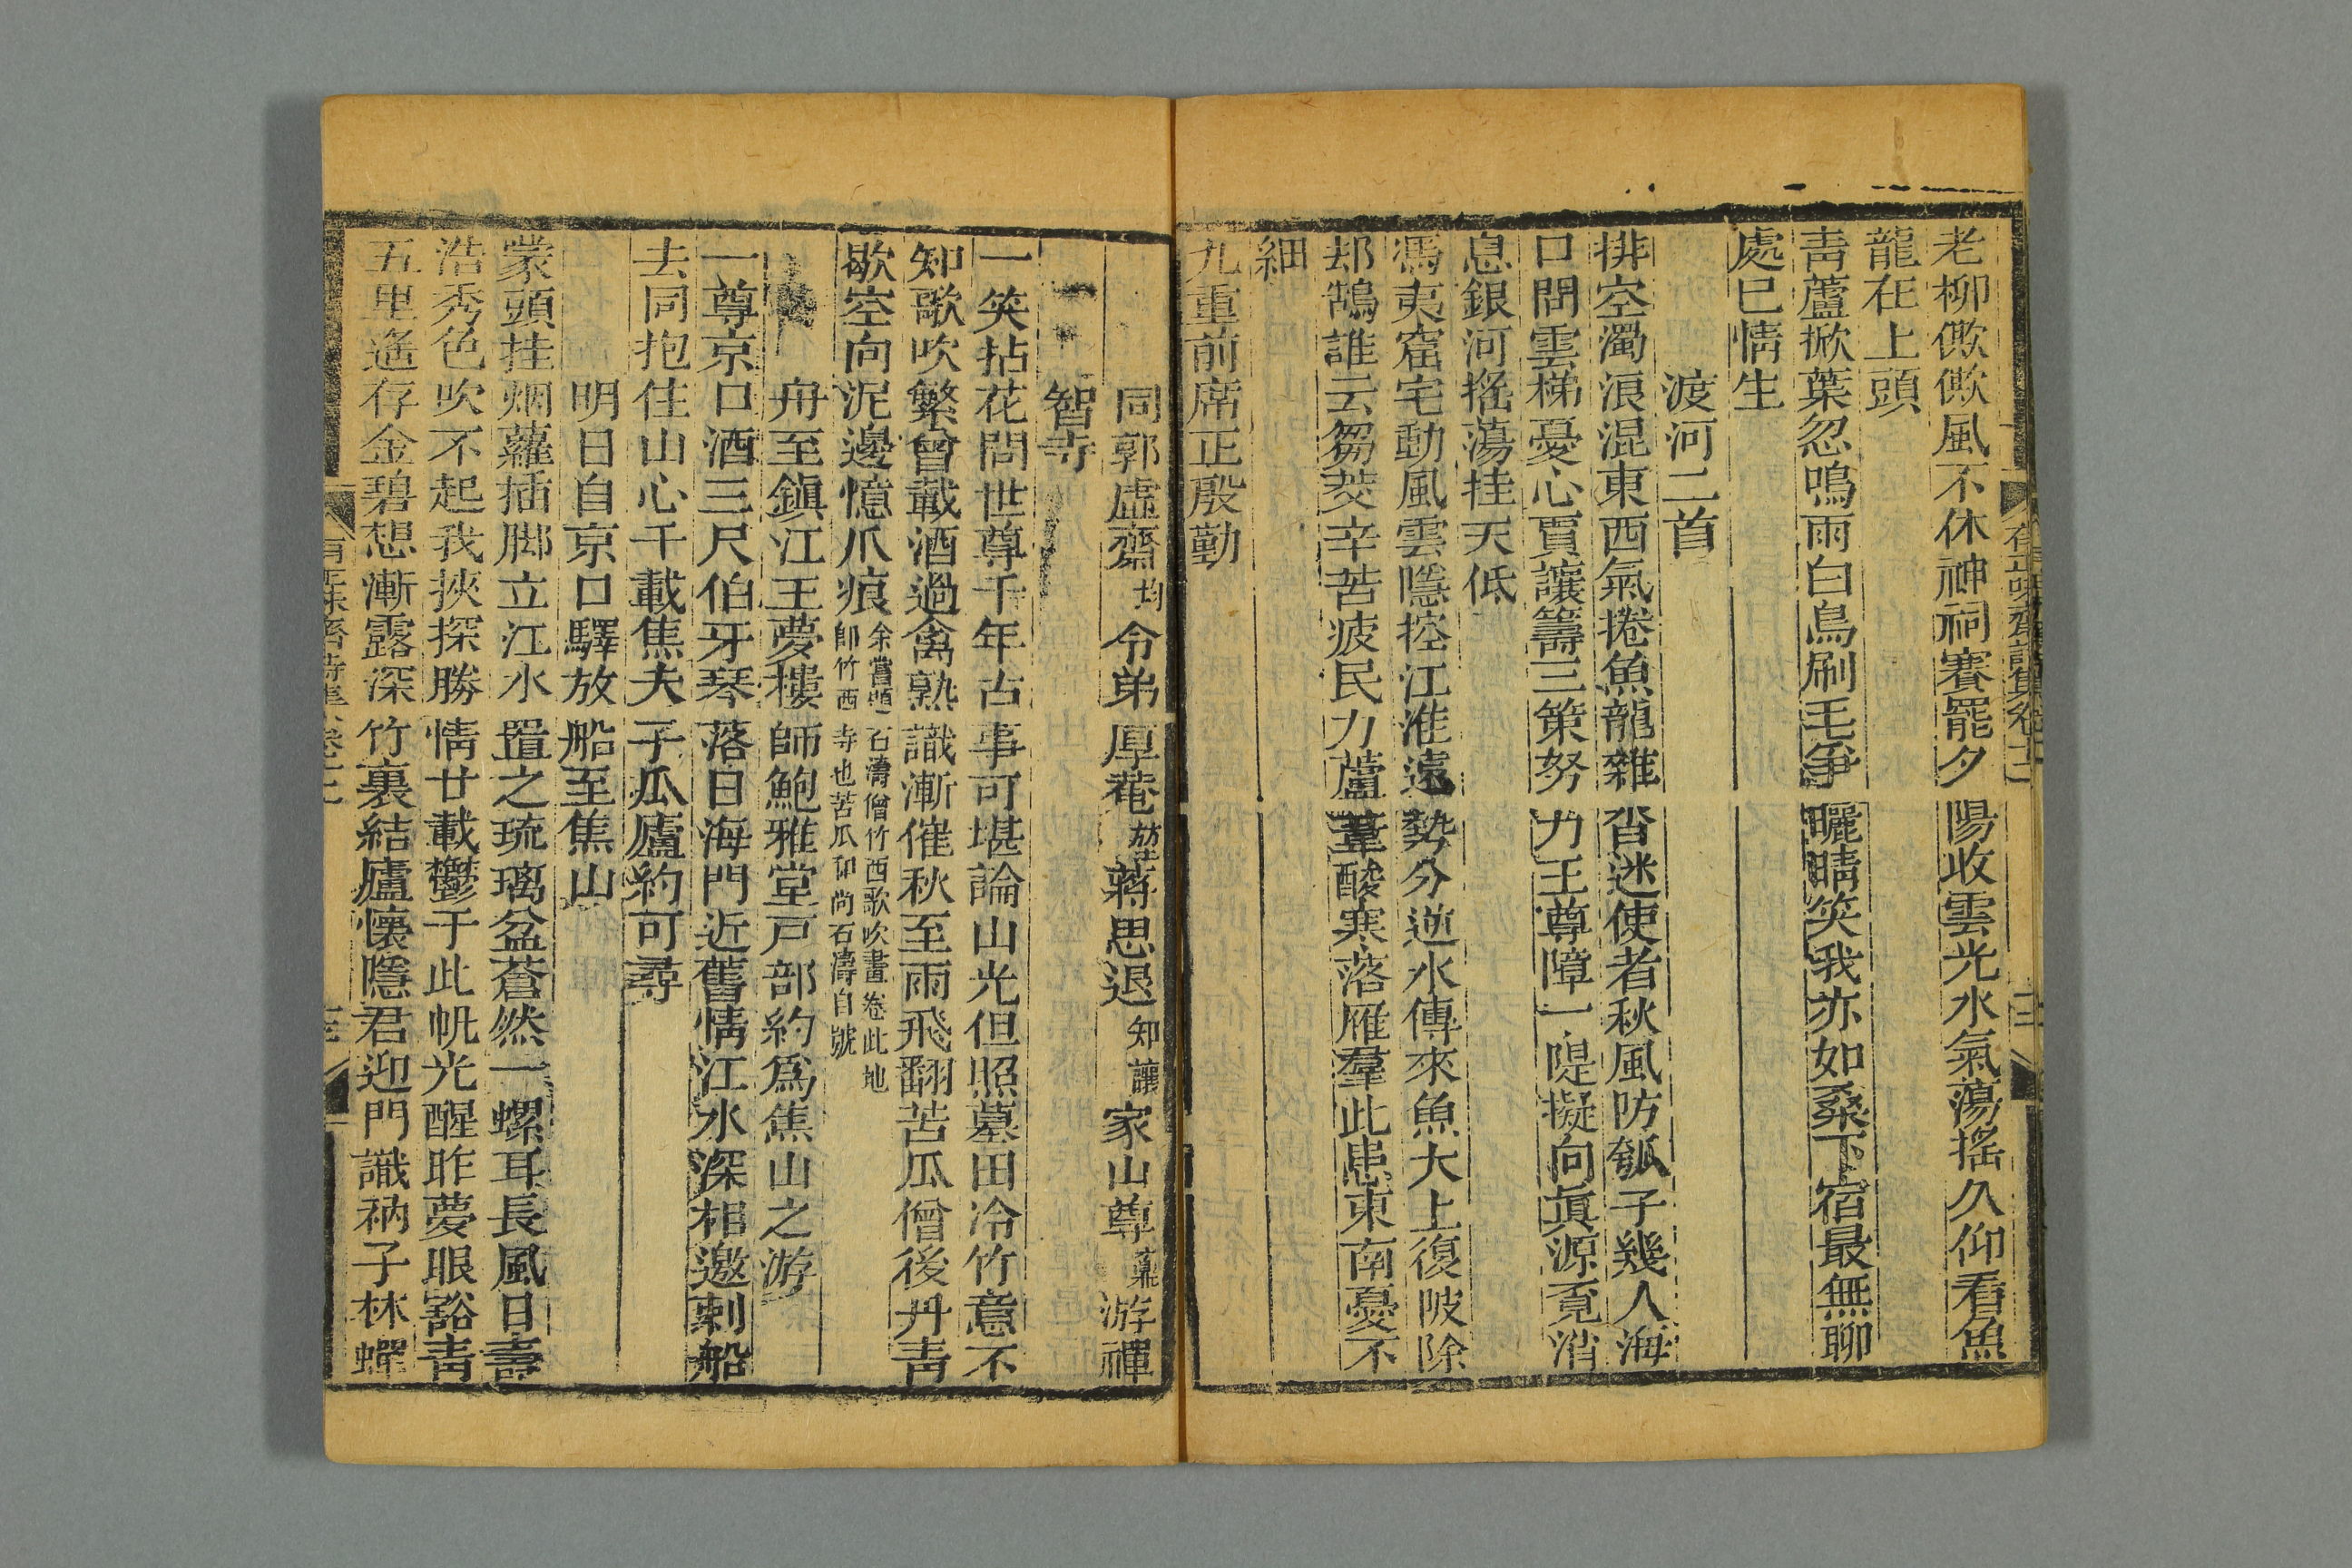 老柳僛僛風不休神祠賽罷夕陽收雲光水氣蕩搖久仰看魚
龍在上頭
靑蘆掀葉忽鳴雨白鳥刷毛爭曬晴笑我亦如桑下宿最無聊
處巳情生
渡河二首
排空濁浪混東西氣捲魚龍雜沓迷使者秋風防瓠子幾人海
口問雲梯憂心賈讓籌三策努力王尊障一隄擬向眞源覔消
息銀河搖蕩挂天低
馮夷窟宅動風雲隱控江淮遠勢分逆水傳來魚大上復陂除
却鵠誰云芻茭辛苦疲民力蘆葦酸寒落雁羣此患東南憂不
細
九重前席正殷勤
有正味齋詩集卷十二
同郭虛齋均令弟厚菴堃蔣思退知讓家山尊鼒游禪
智寺
一笑拈花問世尊千年古事可堪論山光但照墓田冷竹意不
知歌吹繁曾載酒過禽熟識漸催秋至雨飛翻苦瓜僧後丹靑
歇空向泥邊憶爪痕余嘗題石濤僧竹西歌吹畫卷此地
卽竹西寺也苦瓜和尚石濤自號
舟至鎭江王夢樓師鮑雅堂戸部約爲焦山之游
一尊京口酒三尺伯牙琴落日海門近舊情江水深相邀剌船
去同抱住山心千載焦夫子瓜廬約可尋
明日自京口驛放船至焦山
蒙頭挂烟蘿插脚立江水置之琉璃盆蒼然一螺耳長風日壽
浩秀色吹不起我挾探勝情廿載鬱于此帆光醒昨夢眼豁靑
五里遙存金碧想漸露深竹裏結廬懷隱君迎門識衲子林蟬